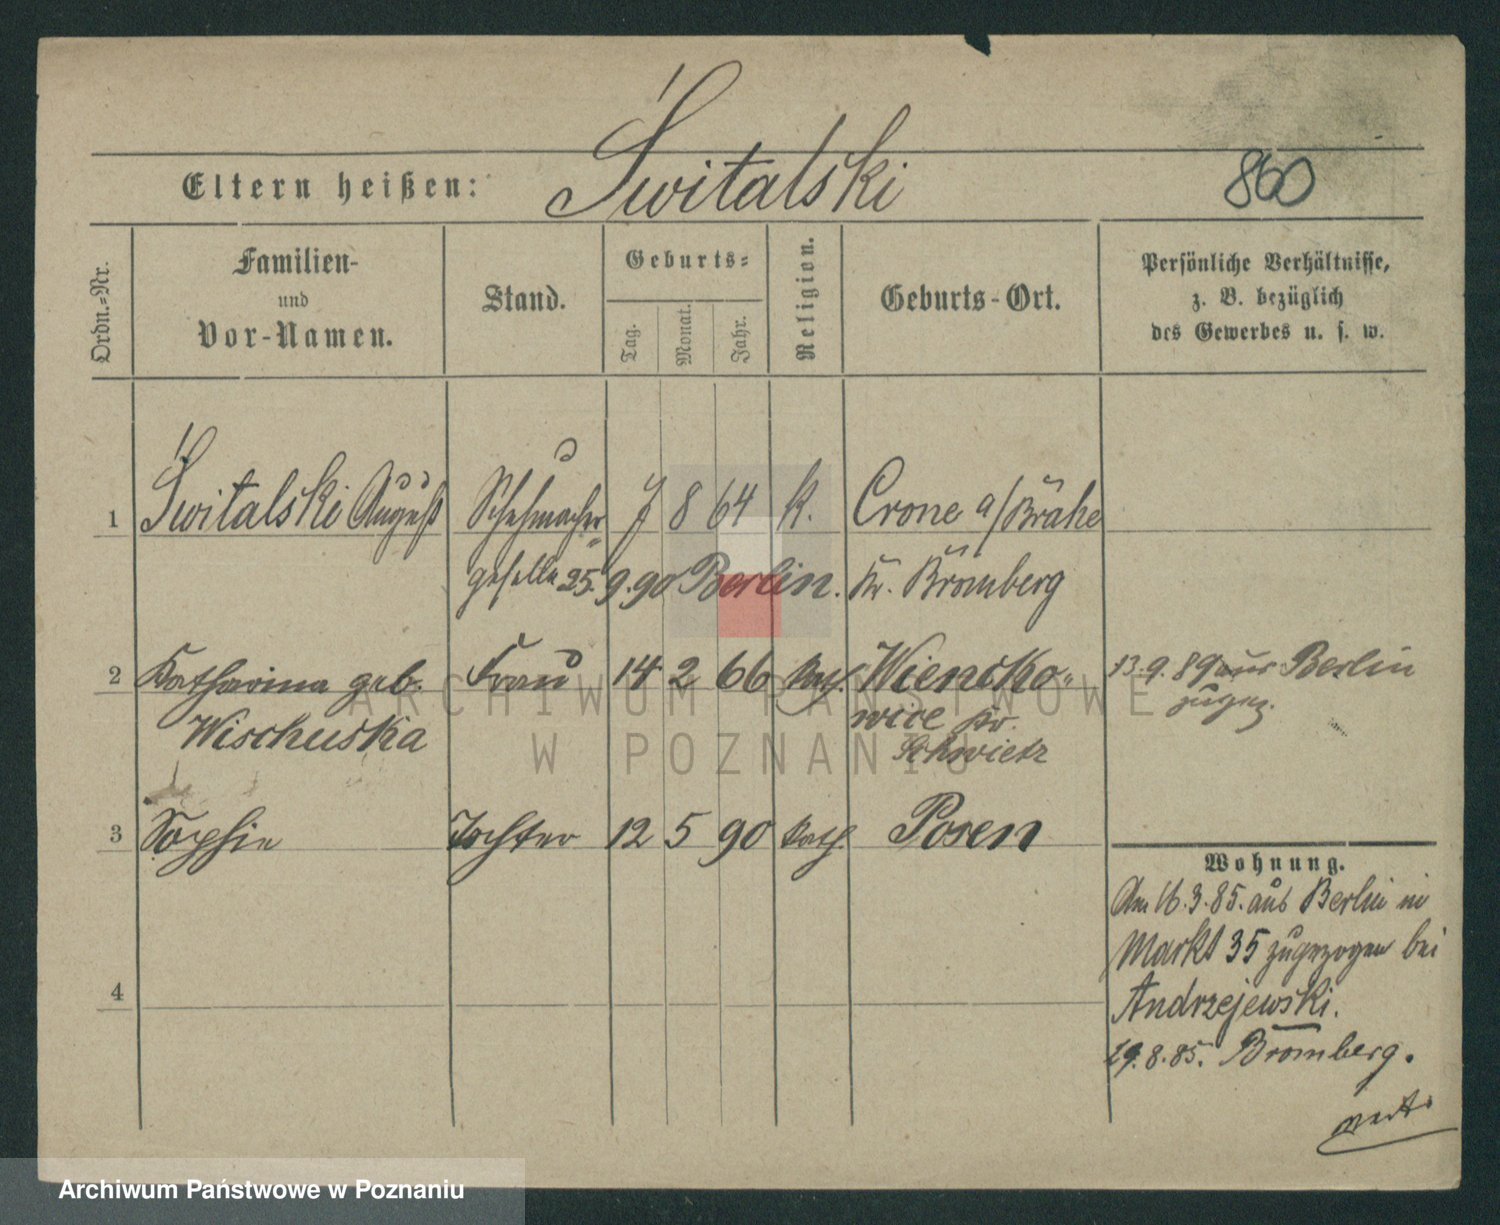 Świtalski
Eltern heißen:
860
Ordn.-Nr.
Familien-
und
Vor-Namen.
Stand.
Geburts-
Tag.
Monat.
Jahr.
Religion.
Geburts-Ort.
Persönliche Verhältnisse,
z. B. bezüglich
des Gewerbes u. s. w.
1 Świtalski August Schuhmacher- 7 8 64 k. Crone a/Brahe
geselle 25.9.90 Berlin. Kr. Bromberg
2 Katharina geb. Frau 14 2 66 kath. Wiencko- 13.9.89 aus Berlin
Wischuska wice Kr. zugez.
3 Sophie Tochter 12 5 90 kath. Posen
Wohnung.
Am 16.3.85. aus Berlin in
Markt 35 zugezogen bei
Andrzejewski.
4
29.8.85. Bromberg.
ARCHIWUM PAŃSTWOWE
W POZNANIU
Archiwum Państwowe w Poznaniu